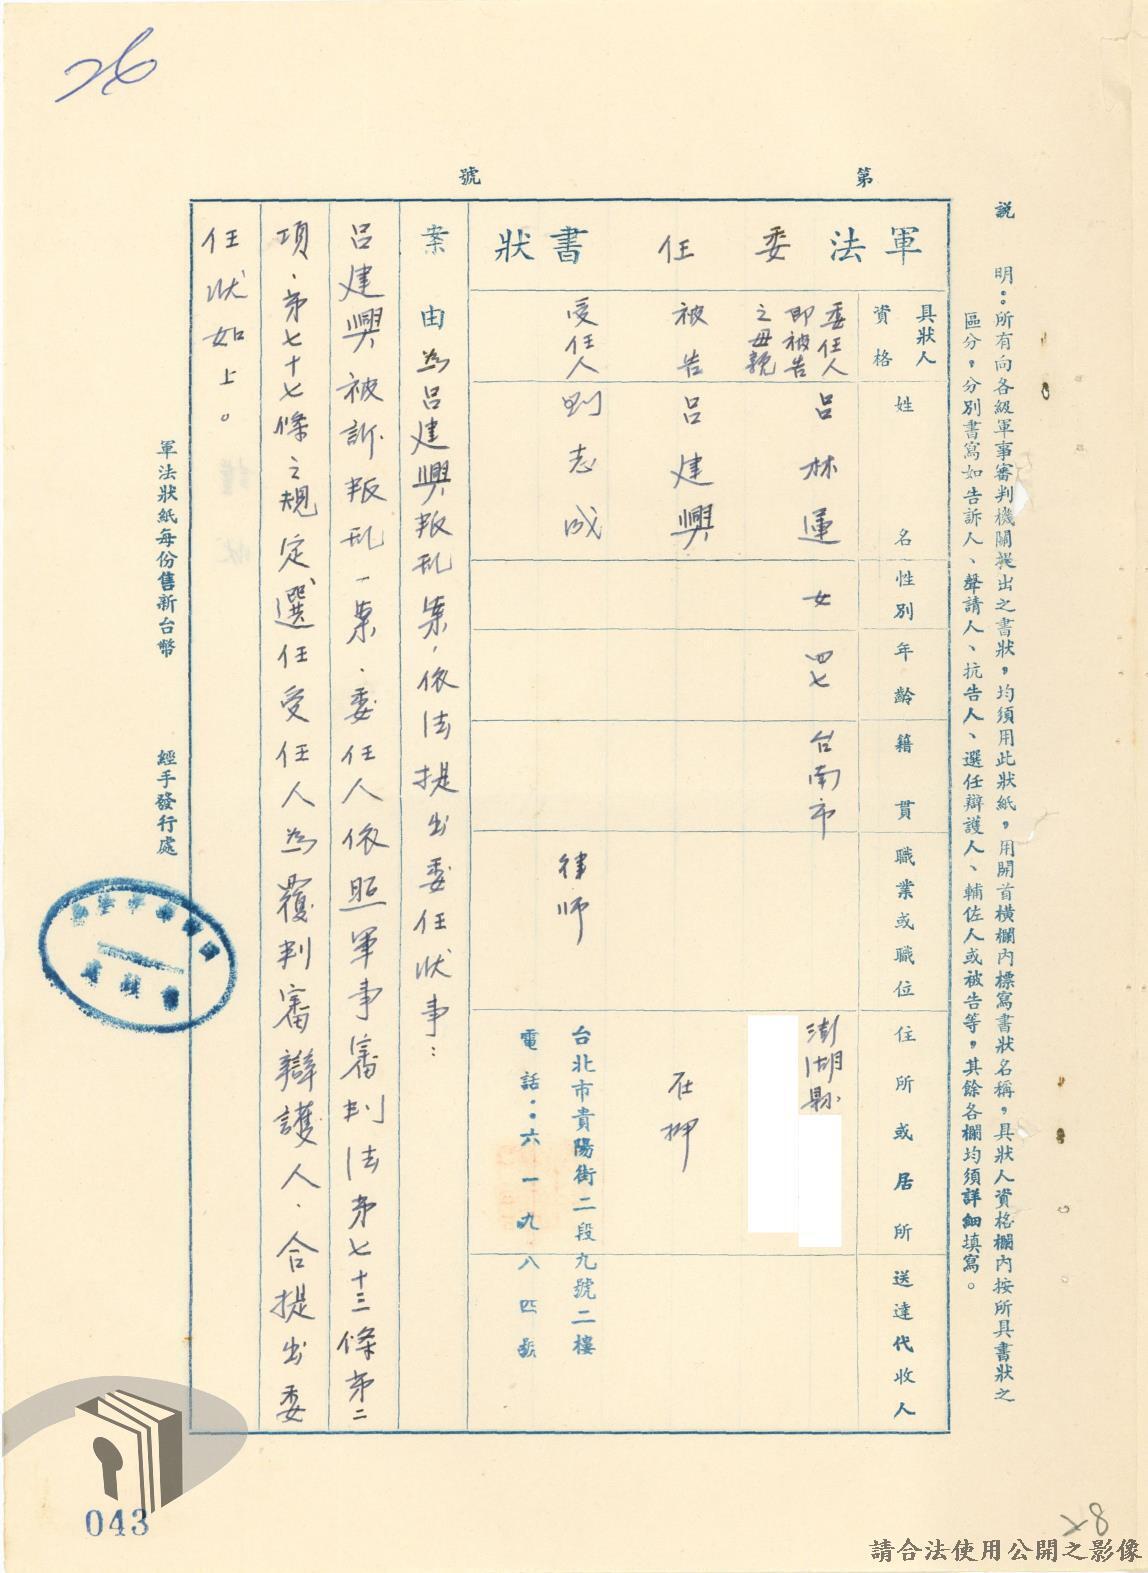 26
第　號
說　明：所有向各級軍事審判機關提出之書狀，均須用此狀紙，用開首橫欄內標寫書狀名稱，具狀人資格欄內按所具書狀之
區分，分別書寫如告訴人、聲請人、抗告人、選任辯護人、輔佐人或被告等，其餘各欄均須詳細填寫。
軍法委任書狀
具狀人
資格
姓名
性別
年齡
籍貫
職業或職位
住所或居所
送達代收人
委任人
即被告
之母親
呂林運
女
四七
台南市
澎湖縣
被告
呂建興
在押
受任人
劉志成
律師
台北市貴陽街二段九號二樓
電話：六一九八四號
案由為呂建興叛乱案，依法提出委任狀事：
呂建興被訴叛乱一案、委任人依照軍事審判法第七十三條第二
項、第七十七條之規定選任受任人為覆判審辯護人、合提出委
任狀如上。
軍法狀紙每份售新台幣　經手發行處
043
28
請合法使用公開之影像